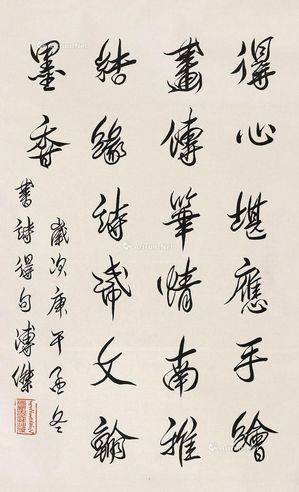 得心堪應手繪
畫傳筆情南雅
結緣詩希文翰
墨香
歲次庚午孟冬
書詩得句溥傑